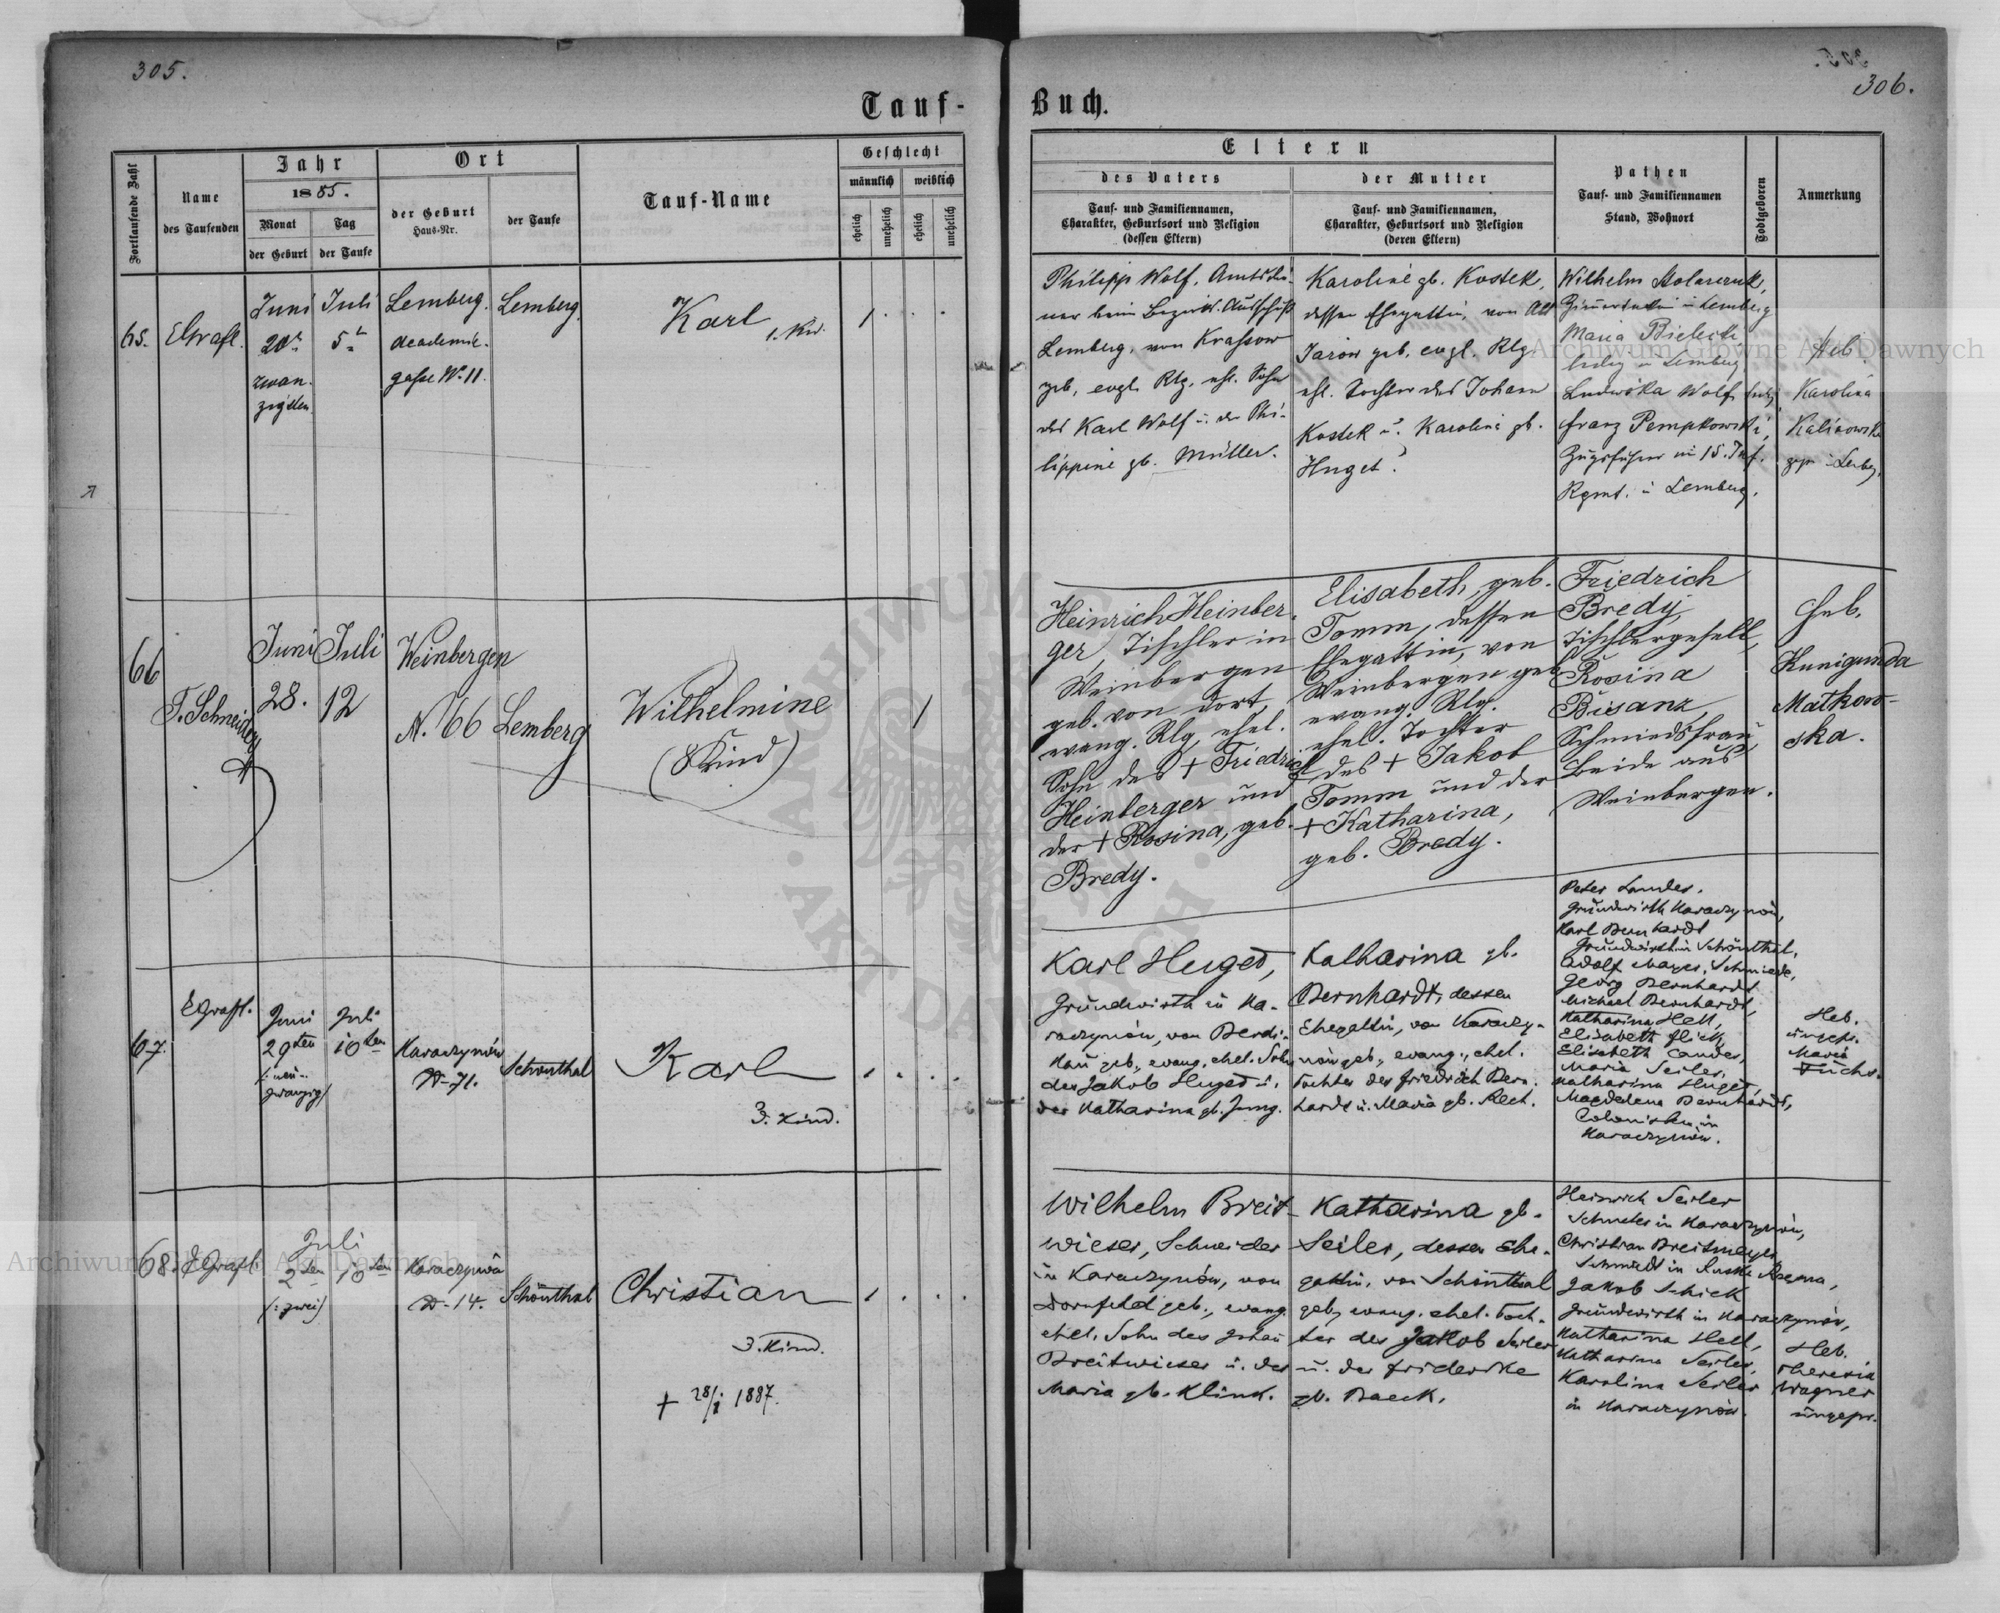 305.
306.
Tauf-
Buch.
Fortlaufende Zahl
Name
des Taufenden
Jahr
1885.
Monat
der Geburt
Tag
der Taufe
Ort
der Geburt
Haus-Nr.
der Taufe
Tauf-Name
Geschlecht
männlich
weiblich
ehelich
unehelich
ehelich
unehelich
Eltern
des Vaters
Tauf- und Familiennamen,
Charakter, Geburtsort und Religion
(dessen Eltern)
der Mutter
Tauf- und Familiennamen,
Charakter, Geburtsort und Religion
(deren Eltern)
Pathen
Tauf- und Familiennamen
Stand, Wohnort
Todtgeboren
Anmerkung
65.
EGrafl.
Juni
20r
zwan-
zigsten
Juli
5t
Lemberg.
Academie-
gasse No 11.
Lemberg.
Karl
1. Kind.
1
Philipp Wolf, Amtsdie-
ner beim Bezirks-Ausschuß
Lemberg, von Krassow
geb., evgl. Rlg., ehl. Sohn
des Karl Wolf u. der Phi-
lippine gb. Müller.
Karoline gb. Kostek,
dessen Ehegattin, von Alt
Jazow geb. evgl. Rlg.
ehl. Tochter des Johann
Kostek u. Karolina gb.
Huget.
Wilhelm
in Lemberg
Maria Bielecki
ledig in Lemberg
Ludwika Wolf, ledig
Franz Pempkowski,
Zugsführer im 15. Inf.
Rgmt. in Lemberg.
Heb.
Karolina
Kalinowska
gepr. in Lembg.
66
T. Schneider
Juni
28.
Juli
12
Weinbergen
N. 66
Lemberg
Wilhelmine
(8 Kind)
1
Heinrich Heinber-
ger, Tischler in
Weinbergen
geb. von dort,
evang. Rlg, ehel.
Sohn des + Friedrich
Heinberger und
der + Rosina, geb.
Bredy.
Elisabeth, geb.
Tomm, dessen
Ehegattin, von
Weinbergen geb
evang. Rlg.
ehel. Tochter
des + Jakob
Tomm und der
+ Katharina,
geb. Bredy.
Friedrich
Bredy,
Tischlergesell,
Rosina
Bisanz,
Schmiedsfrau,
Beide aus
Weinbergen.
Heb.
Kunigunda
Matkow-
ska.
67.
EGrafl.
Juni
29ten
(: neun-
zwanzig)
Juli
10ten
Karaczynów
N-71.
Schönthal
Karl
3. Kind.
1
Karl Huget,
Grundwirth in Ka-
raczynów, von Berdi-
kau geb., evang. ehel. Sohn
des Jakob Huget u.
der Katharina gb. Jung.
Katharina gb.
Bernhardt, dessen
Ehegattin, von Karaczy-
nów geb., evang., ehel.
Tochter des Friedrich Bern-
hardt u. Maria gb. Rech.
Peter Landes,
Grundwirth Karaczynów,
Karl Bernhardt
Grundwirth in Schönthal,
Adolf Mayer, Schmiede,
Georg Bernhardt
Michael Bernhardt,
Katharina Hell,
Elisabeth Flich,
Elisabeth Landes,
Maria Seiler,
Katharina Huget,
Magdalena Bernhardt,
in
Karaczynów.
Heb.
ungepr.
Maria
Fuchs.
68.
EGrafl.
Juli
2ten
(: zwei)
10ten
Karaczynów
N-14.
Schönthal
Christian
3. Kind.
+ 28/1 1887.
1
Wilhelm Breit-
wieser, Schneider
in Karaczynów, von
Dornfeld geb., evang.
ehel. Sohn des Johan
Breitwieser u. der
Maria gb. Klink.
Katharina gb.
Seiler, dessen Ehe-
gattin, von Schönthal
geb, evang. ehel. Toch-
ter des Jakob Seiler
u. der Friderike
gb. Baeck.
Heinrich Seiler
in Karaczynów,
Christian Breitmeyer,
Schmidt in
Jakob Schick
Grundwirth in Karaczynów,
Katharina Hell,
Katharina Seiler,
Karolina Seiler
in Karaczynów.
Heb.
Theresia
Wagner
ungepr.
Archiwum Główne Akt Dawnych
Archiwum Główne Akt Dawnych
ARCHIWUM GŁÓWNE AKT DAWNYCH